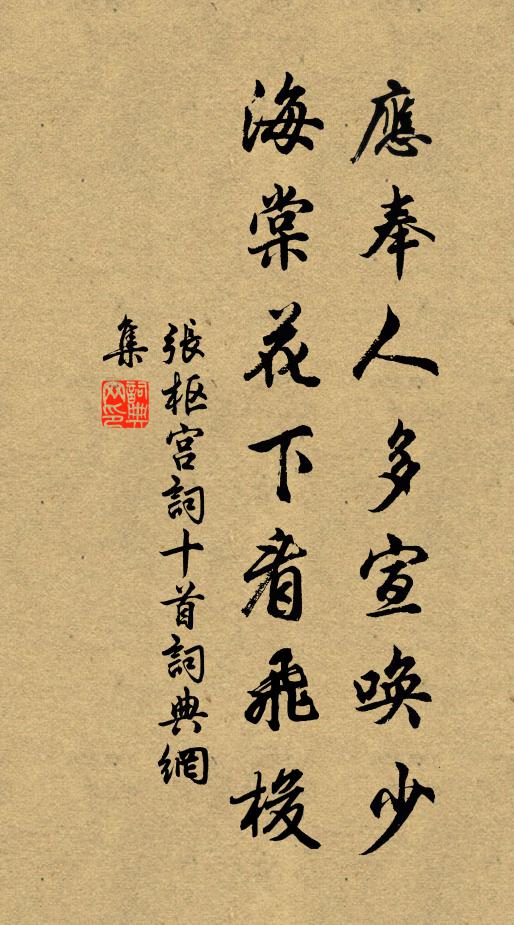 應奉人多宣喚少
海棠花下看飛梭
張樞宮詞十首詞典網
集
詞典
網印